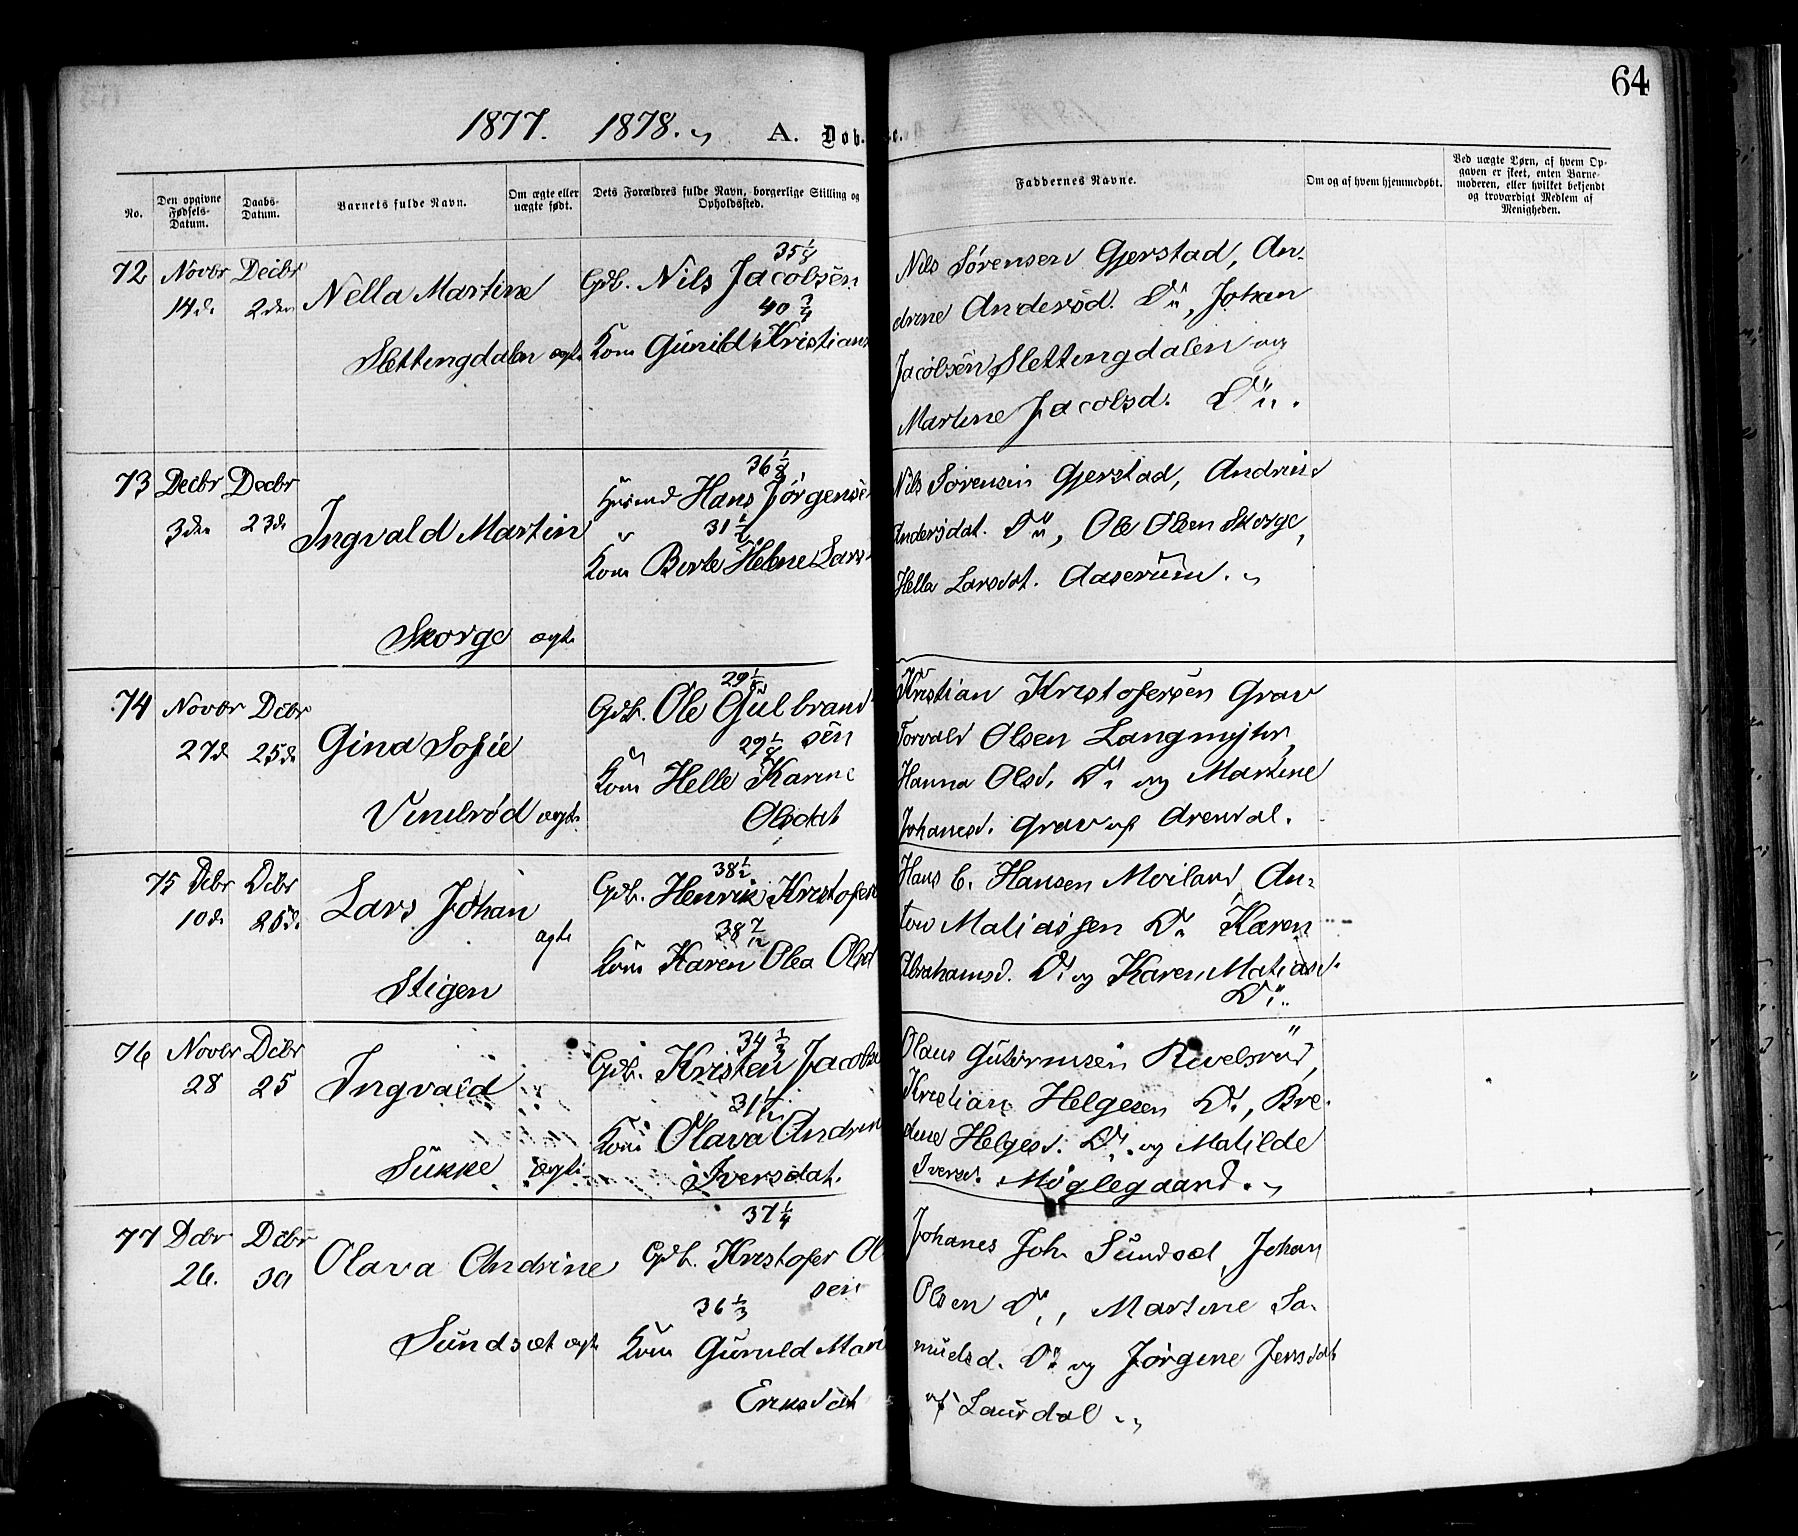 64
1877. 1878. A. Døb
No.
Den opgivne Fødsels-Datum.
Daabs-Datum.
Barnets fulde Navn.
Om ægte eller uægte født.
Dets Forældres fulde Navn, borgerlige Stilling og Opholdssted.
Faddernes Navne.
Om og af hvem hjemmedøbt.
Ved uægte Børn, af hvem Opgaven er skeet, enten Barnemoderen, eller hvilket bekjendt og troværdigt Medlem af Menigheden.
72 Novbr Decbr
14d. 2den
Nella Martine
Slettingdalen ægte
35 1/8
Gdb. Nils Jacobsen
40 3/4
Kone Gunild Kristians
Nils Sørensen Gjerstad, An-
drine Anderød. Do, Johan
Jacobsen Slettingdalen og
Martine Jacobsd. Do.
73 Decbr Decbr
3den 23d
Ingvald Martin
Skorge ægte
36 1/8
Husmd Hans Jørgensen
31 1/2
Kone Berte Helene Lars
Nils Sørensen Gjerstad, Andrine
Andersdat. Do, Ole Olsen Skorge,
Helle Larsdat. Aaserum.
74 Novbr Dcbr
27d 25d
Gina Sofie
Vinelrød ægte
Gdb. Ole Gulbrand
sen
29 1/8
Kone Helle Karine
Olsdat
Kristian Kristofersen Grav
Torvald Olsen Langmyhr,
Hanna Olsd. Do og Martine
Johanesd. Grav af Arendal.
75 Dcbr Dcbr
10d. 25d.
Lars Johan
ægte
Stigen
38 1/2
Gdb. Henrik Kristofers
38 7/12
Kone Karen Olea Olsd
Hans C. Hansen Moiland, An-
ton Matiassen Do Karen
Abrahamsd. Do og Karen Matiasd.
Do
76 Novbr Dcbr
28 25
Ingvald
Sukke ægte
34 1/3
Gdb. Kristen Jacobse
Kone Olava Andrin
Iversdat.
Olaus Gutormsen Revelsrød,
Kristian Helgesen Do, Bre-
dine Helgesd. Do. og Matilde
Iversd. Møglegaard.
77 Dcbr Dcbr
26. 30
Olava Andrine
Sundsæt ægte
37 1/4
Gdb. Kristofer Ol
sen
36 1/3
Kone Gunild Mari
Eriksdat
Johanes Joh. Sundsæt, Johan
Olsen Do, Martine Sa-
muelsd. Do og Jørgine Jensdat
af Laurdal